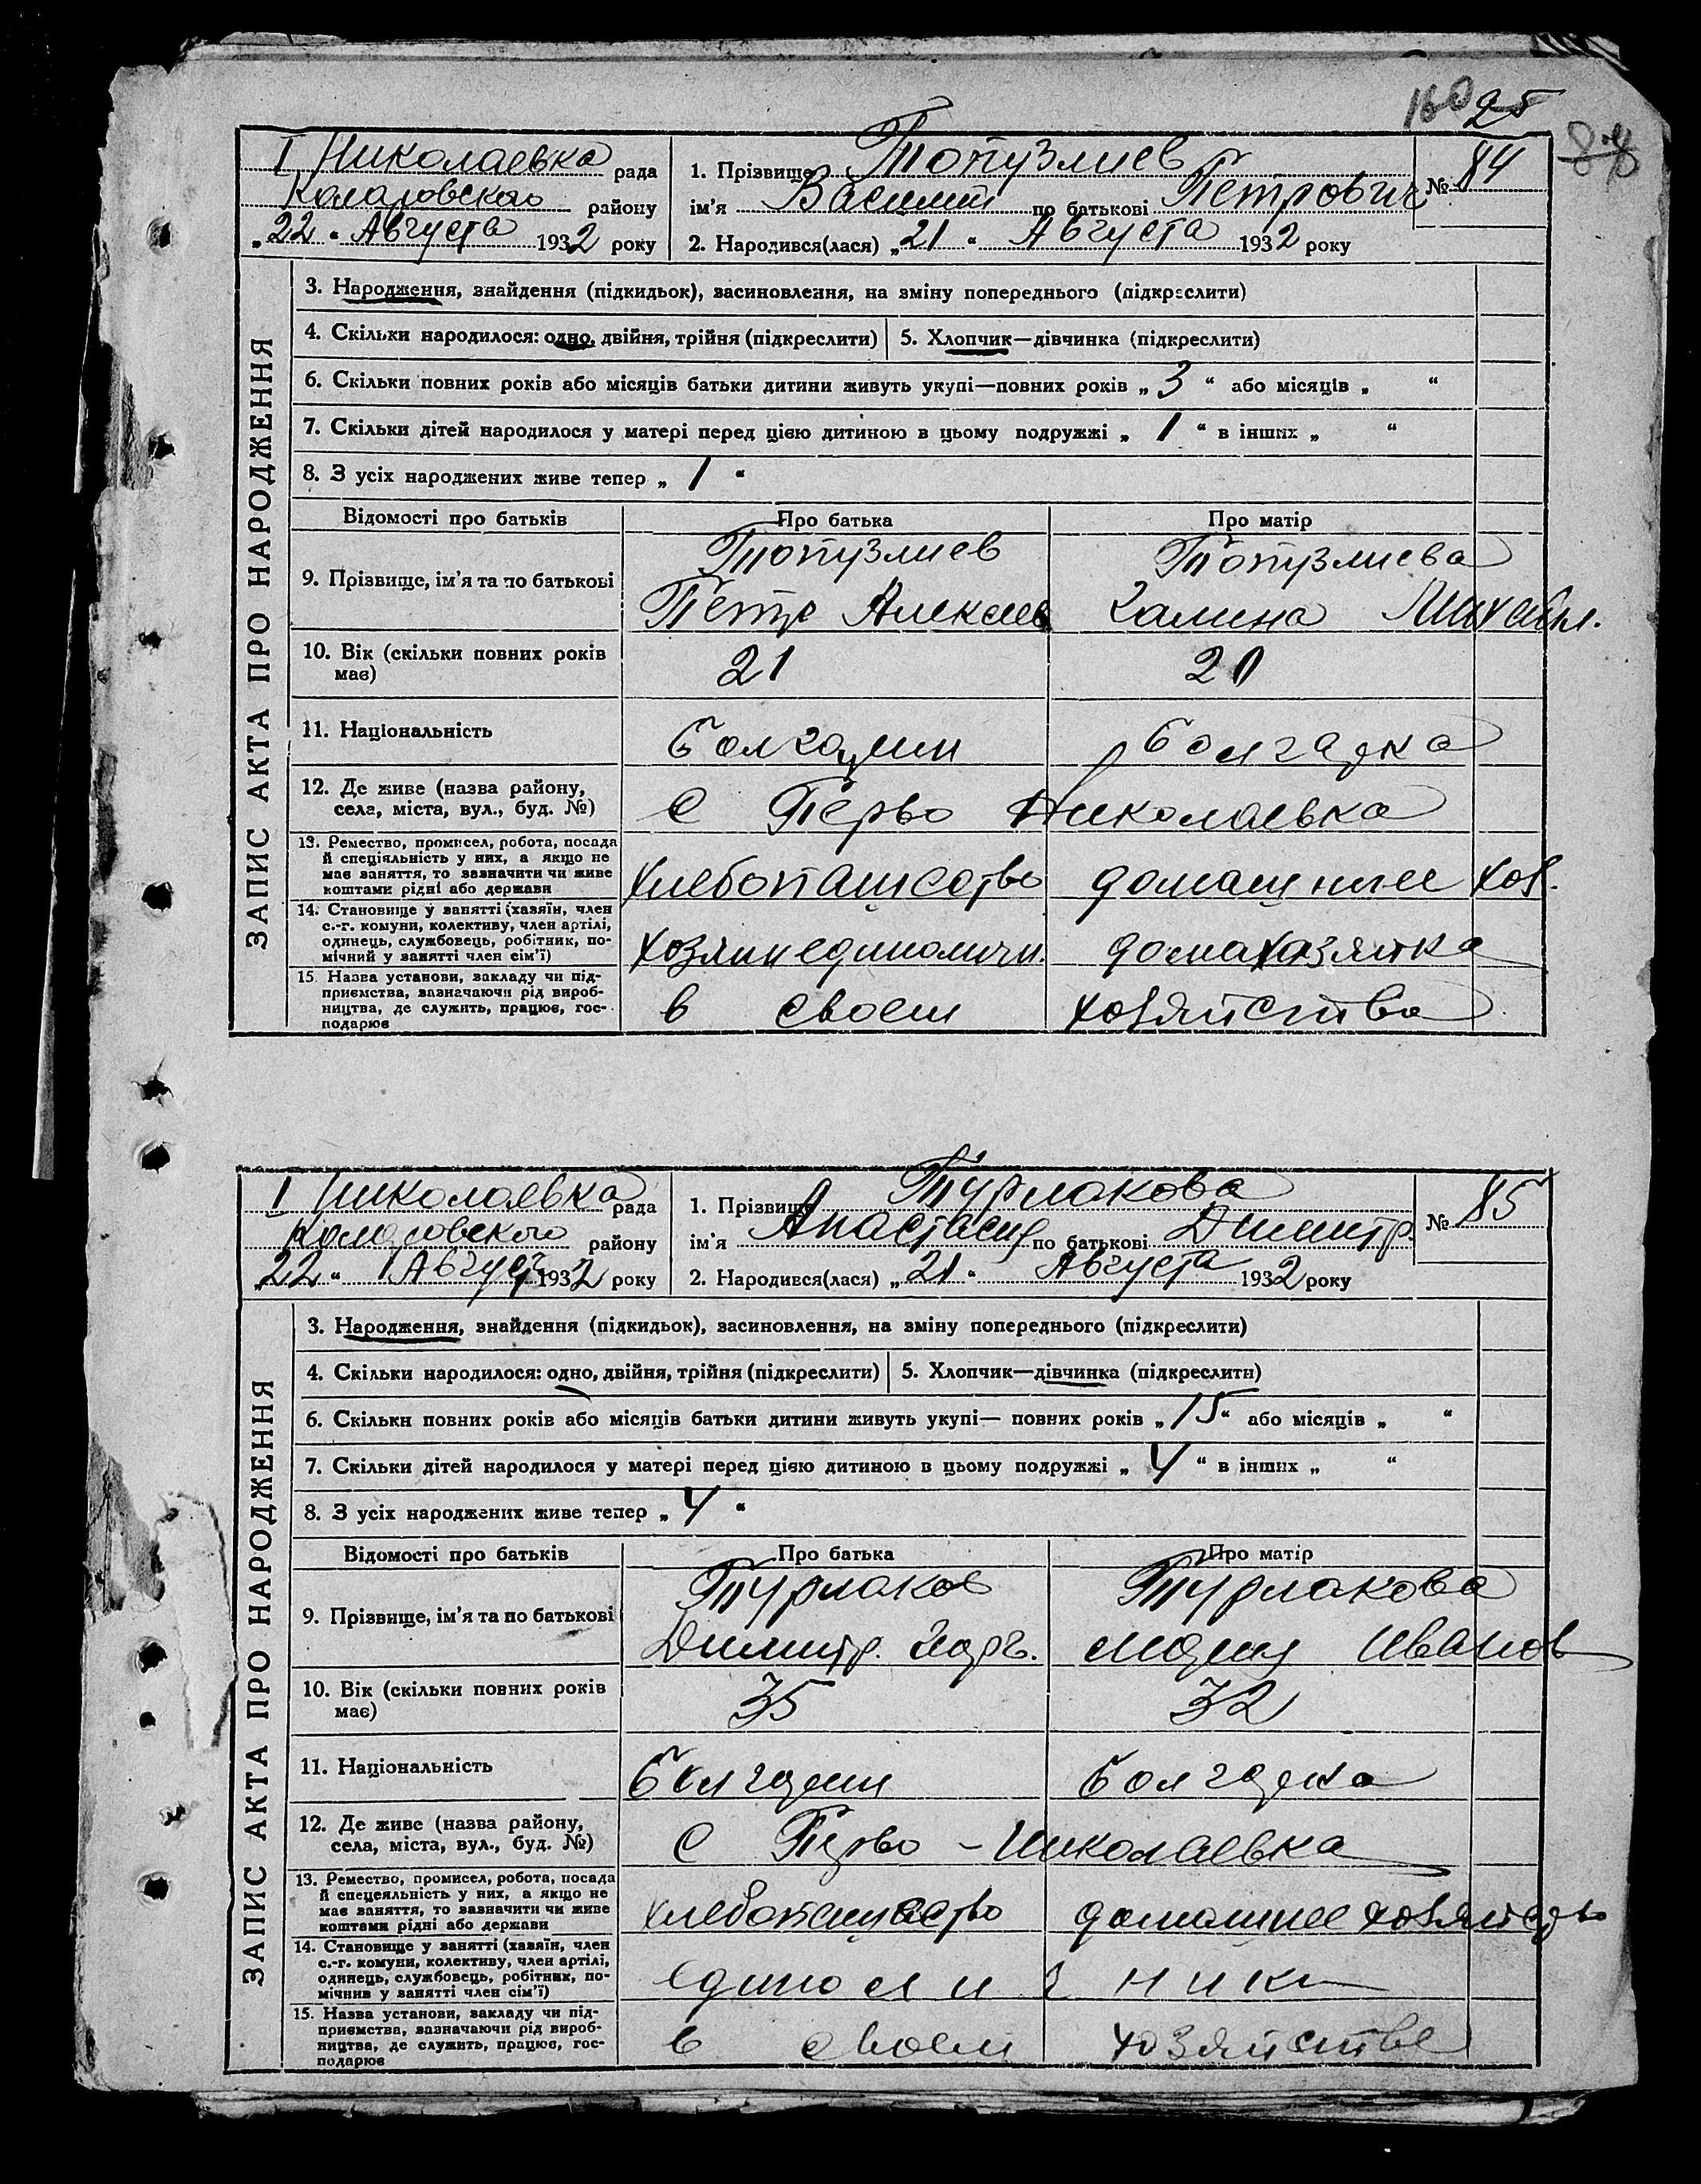 160 25
I Николаевка рада
Коларовского району
„22“ Августа 1932 року
1. Прізвище Топузлиев
ім'я Василий по батькові Петрович
2. Народився(лася) „21“ Августа 1932 року
№ 84
ЗАПИС АКТА ПРО НАРОДЖЕННЯ
3. Народження, знайдення (підкидьок), засиновлення, на зміну попереднього (підкреслити)
4. Скільки народилося: одно, двійня, трійня (підкреслити) 5. Хлопчик—дівчинка (підкреслити)
6. Скільки повних років або місяців батьки дитини живуть укупі—повних років „3“ або місяців „ “
7. Скільки дітей народилося у матері перед цією дитиною в цьому подружжі „1“ в інших „ “
8. З усіх народжених живе тепер „1“
Відомості про батьків Про батька Про матір
9. Прізвище, ім'я та по батькові
Топузлиев Топузлиева
Петр Алексеев Калина Михайл.
10. Вік (скільки повних років
має)
21 20
11. Національність болгарин болгарка
12. Де живе (назва району,
села, міста, вул., буд. №)
С Перво Николаевка
13. Ремество, промисел, робота, посада
й спеціяльність у них, а якщо не
має заняття, то зазначити чи живе
коштами рідні або держави
хлебопашество домашнее хоз.
14. Становище у занятті (хазяїн, член
с.-г. комуни, колективу, член артілі,
одинець, службовець, робітник, по-
мічний у занятті член сім'ї)
хозяин единоличн. домахозяйка
15. Назва установи, закладу чи під-
приємства, зазначаючи рід вироб-
ництва, де служить, працює, гос-
подарює
в своем хозяйства
I Николаевка рада
Коларовского району
„22“ Август 1932 року
1. Прізвище Турлакова
ім'я Анастасия по батькові Димитр.
2. Народився(лася) „21“ Августа 1932 року
№ 85
ЗАПИС АКТА ПРО НАРОДЖЕННЯ
3. Народження, знайдення (підкидьок), засиновлення, на зміну попереднього (підкреслити)
4. Скільки народилося: одно, двійня, трійня (підкреслити) 5. Хлопчик—дівчинка (підкреслити)
6. Скільки повних років або місяців батьки дитини живуть укупі— повних років „15“ або місяців „ “
7. Скільки дітей народилося у матері перед цією дитиною в цьому подружжі „4“ в інших „ “
8. З усіх народжених живе тепер „4“
Відомості про батьків Про батька Про матір
9. Прізвище, ім'я та по батькові
Турлаков Турлакова
Димитр. Мария Иванов
10. Вік (скільки повних років
має)
35 32
11. Національність болгарин болгарка
12. Де живе (назва району,
села, міста, вул., буд. №)
С Перво - Николаевка
13. Ремество, промисел, робота, посада
й спецеяльність у них, а якщо не
має заняття, то зазначити чи живе
коштами рідні або держави
хлебопашество домашнее хозяйство
14. Становище у занятті (хазяїн, член
с.-г. комуни, колективу, член артілі,
одинець, службовець, робітник, по-
мічнив у занятті член сім'ї)
единоличники
15. Назва установи, закладу чи під-
приємства, зазначаючи рід вироб-
ництва, де служить, працює, гос-
подарює
в своем хозяйстве